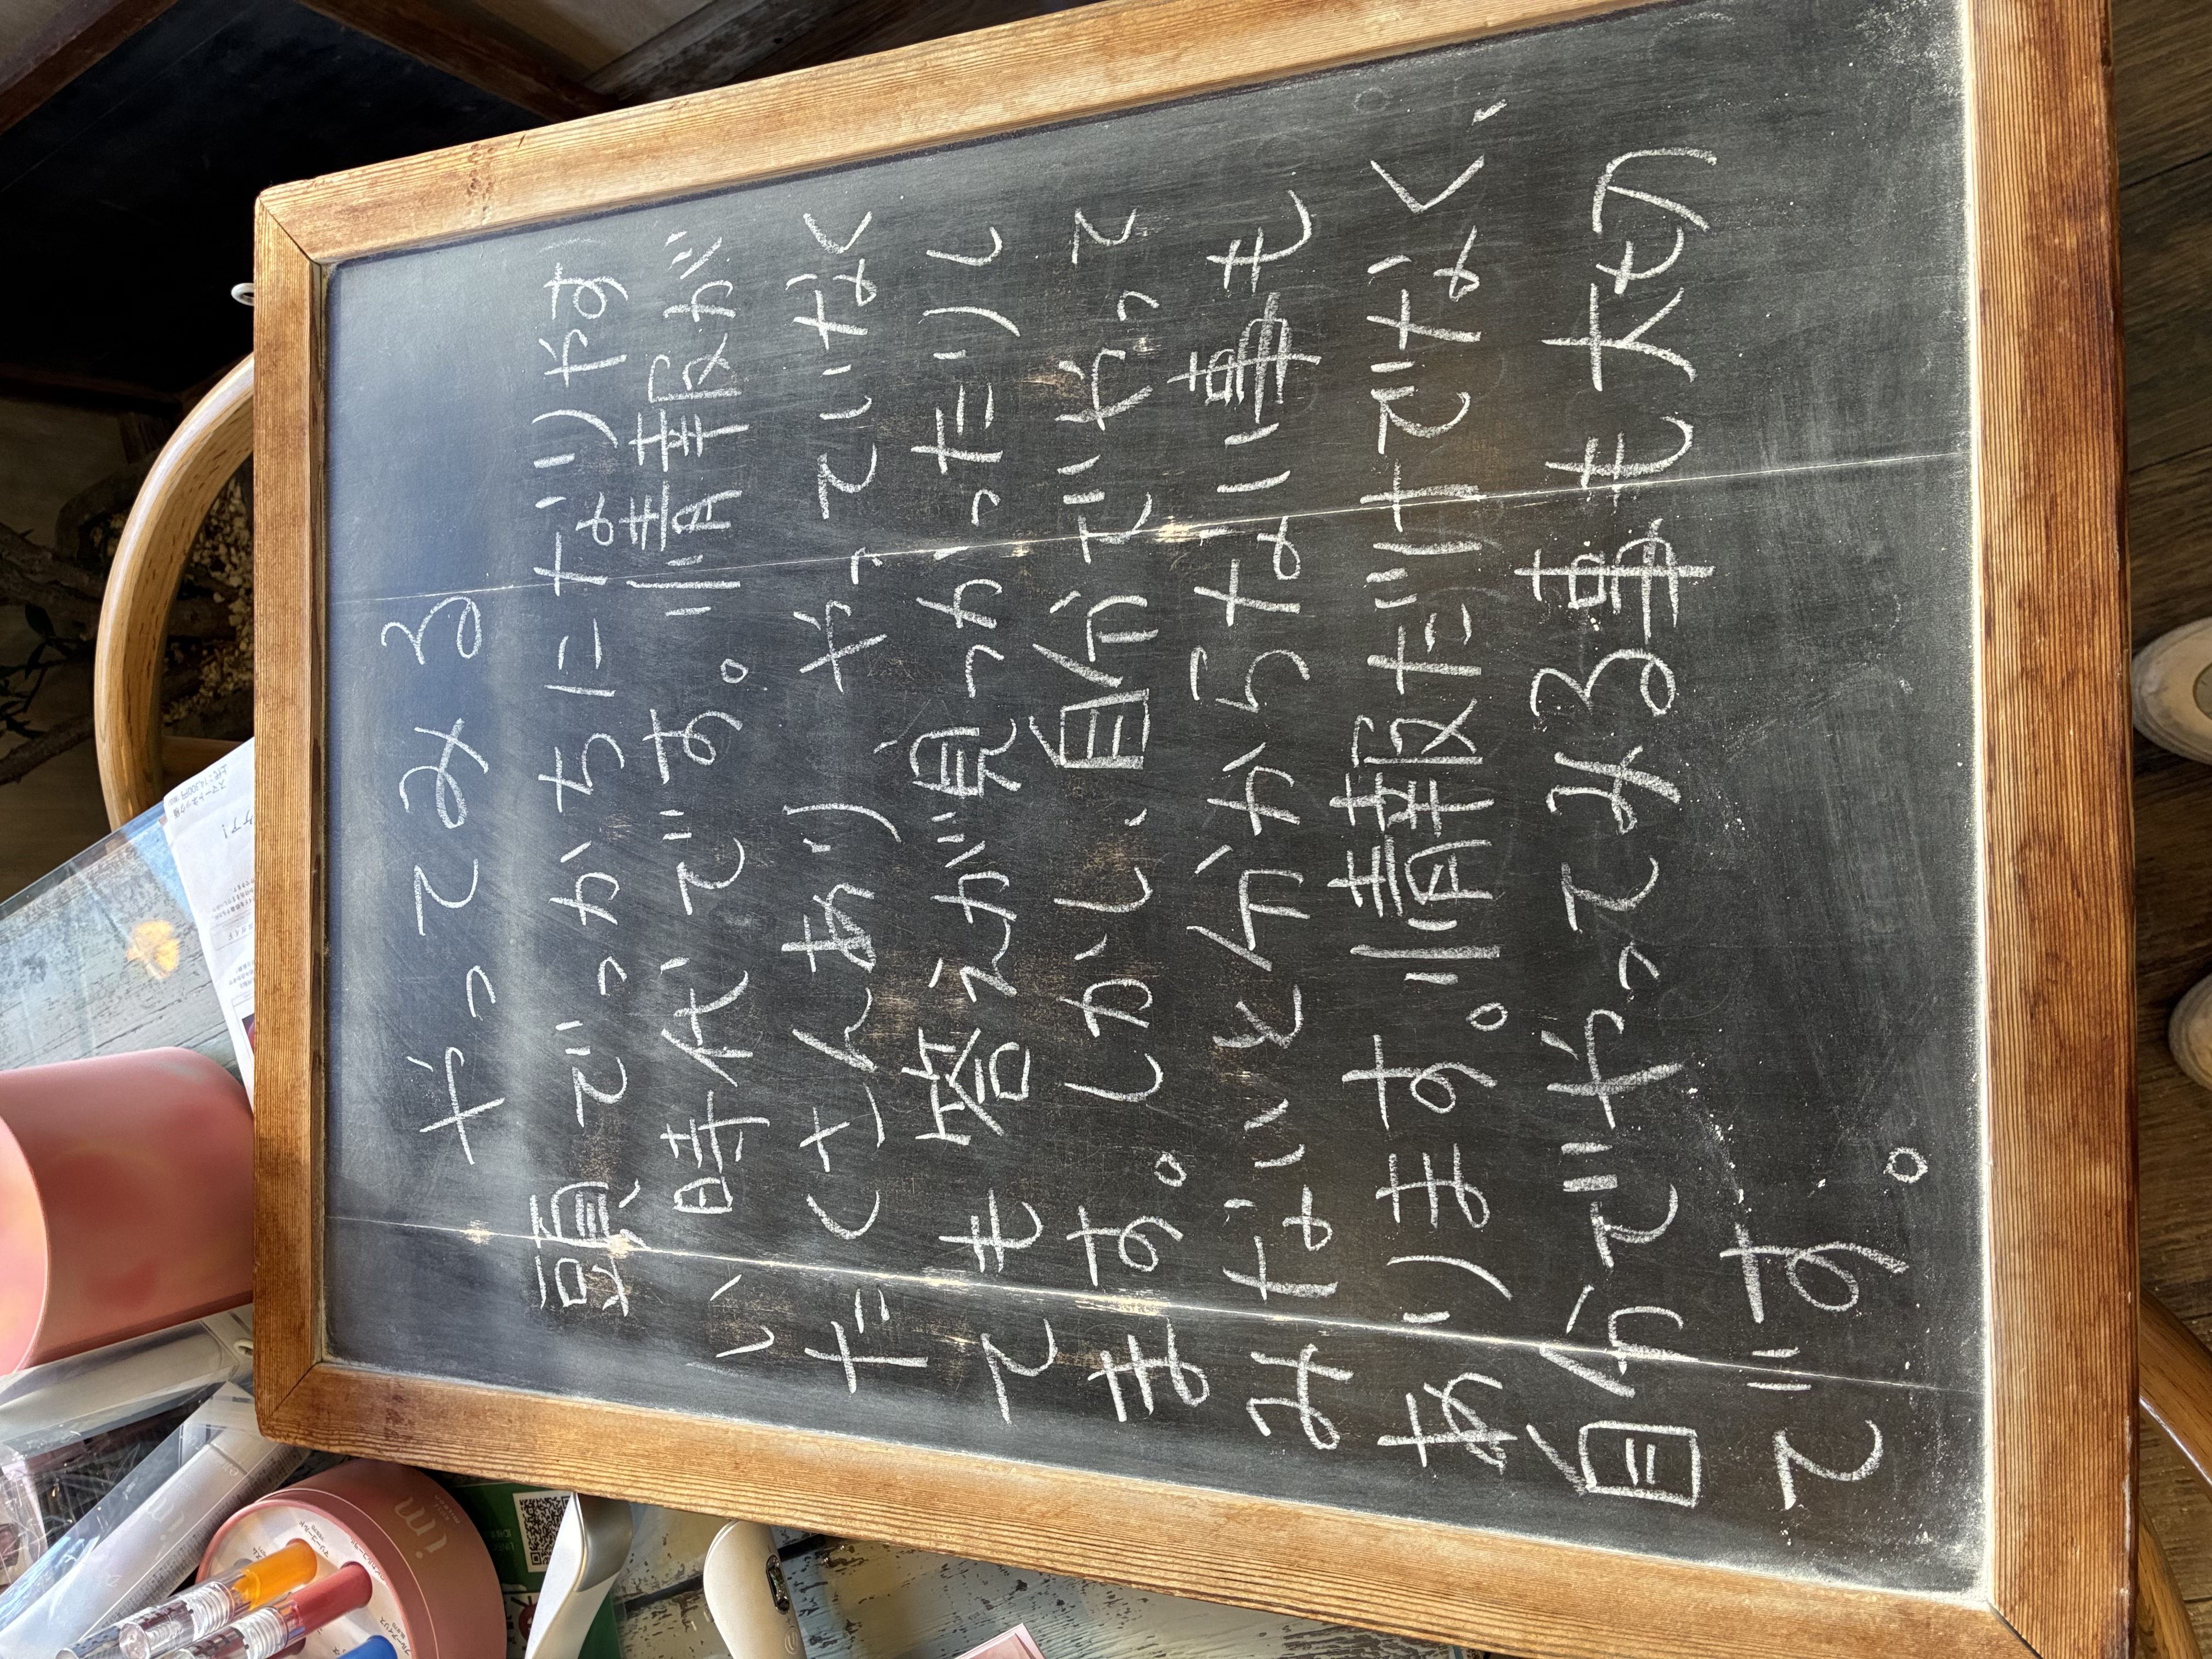 やってみる
頭でっかちになりやす
い時代です。情報が
たくさんあり やっていなく
ても 答えが見つかったりし
ます。しかし、自分でやって
みないと分からない事も
あります。情報だけでなく、
自分でやってみる事も大切
です。
im
im